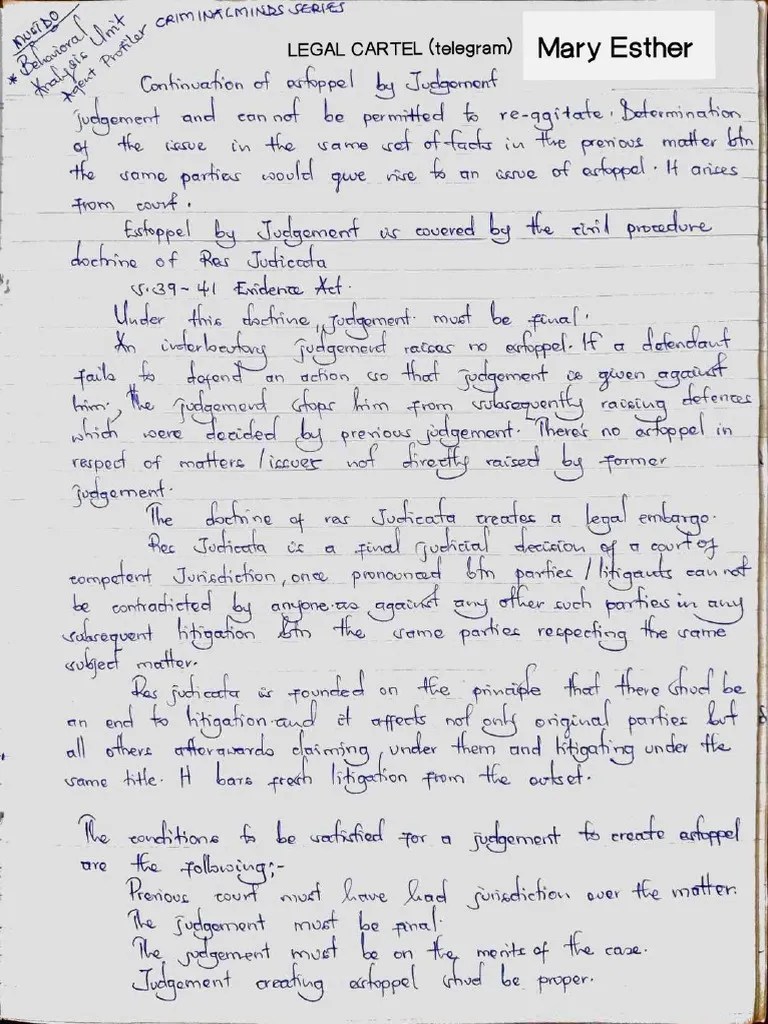 MUST DO
* Behavioral
Analysis Unit
Agent Profiler
CRIMINAL MINDS SERIES
LEGAL CARTEL (telegram)
Mary Esther
Continuation of estoppel by Judgement
judgement and can not be permitted to re-aggitate. Determination
of the issue in the same set of facts in the previous matter btn
the same parties would give rise to an issue of estoppel. It arises
from court.
Estoppel by Judgement is covered by the civil procedure
doctrine of Res Judicata
S.39-41 Evidence Act.
Under this doctrine, judgement must be final.
An interlocutory judgement raises no estoppel. If a defendant
fails to defend an action so that judgement is given against
him, the judgement stops him from subsequently raising defences
which were decided by previous judgement. There's no estoppel in
respect of matters/issues not directly raised by former
judgement.
The doctrine of res Judicata creates a legal embargo.
Res Judicata is a final judicial decision of a court of
competent Jurisdiction, once pronounced btn parties/litigants can not
be contradicted by anyone as against any other such parties in any
subsequent litigation btn the same parties respecting the same
subject matter.
Res judicata is founded on the principle that there shud be
an end to litigation and it affects not only original parties but
all others afterwards claiming under them and litigating under the
same title. It bars fresh litigation from the outset.
The conditions to be satisfied for a judgement to create estoppel
are the following;-
Previous court must have had jurisdiction over the matter.
The judgement must be final.
The judgement must be on the merits of the case.
Judgement creating estoppel shud be proper.